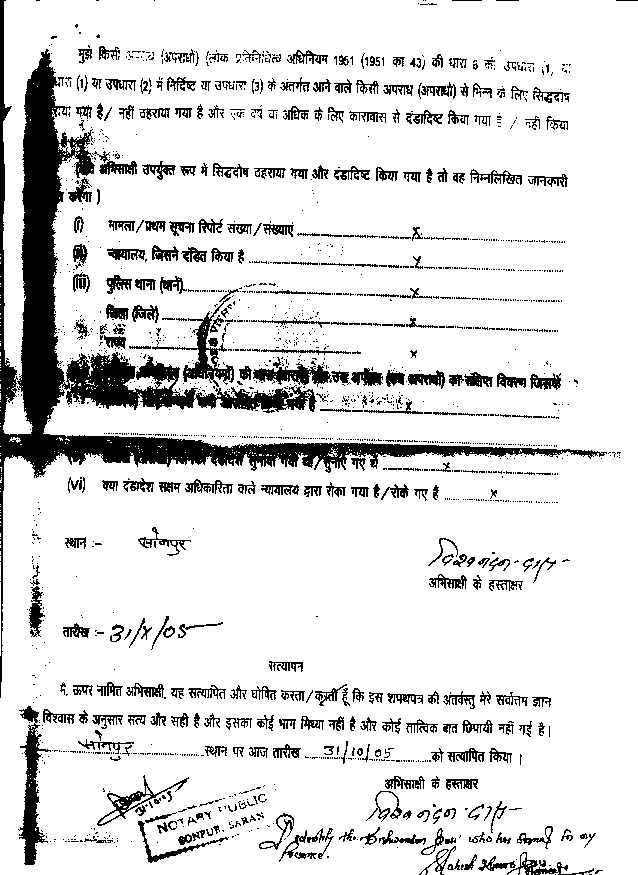 मुझे किसी अपराध (अपराधों) (लोक प्रतिनिधित्व अधिनियम 1951 (1951 का 43) की धारा 8 की उपधारा (1, या
धारा (1) या उपधारा (2) में निर्दिष्ट या उपधारा (3) के अंतर्गत आने वाले किसी अपराध (अपराधों) से भिन्न के लिए सिद्धदोष
ठहराया गया है / नहीं ठहराया गया है और एक वर्ष या अधिक के लिए कारावास से दंडादिष्ट किया गया है / नहीं किया
अभिसाक्षी उपर्युक्त रूप में सिद्धदोष ठहराया गया और दंडादिष्ट किया गया है तो वह निम्नलिखित जानकारी
करेगा )
(i) मामला/प्रथम सूचना रिपोर्ट संख्या/संख्याएं x
(ii) न्यायालय, जिसने दंडित किया है x
(iii) पुलिस थाना (थाने) x
जिला (जिले) x
राज्य x
का संक्षिप्त विवरण जिसके
गया है x
सुनाया गया था/सुनाए गए थे x
(vi) क्या दंडादेश सक्षम अधिकारिता वाले न्यायालय द्वारा रोका गया है/रोके गए हैं x
स्थान :- सोनपुर
अभिसाक्षी के हस्ताक्षर
तारीख :- 31/X/05
सत्यापन
मैं, ऊपर नामित अभिसाक्षी, यह सत्यापित और घोषित करता/करती हूँ कि इस शपथपत्र की अंतर्वस्तु मेरे सर्वोत्तम ज्ञान
और विश्वास के अनुसार सत्य और सही है और इसका कोई भाग मिथ्या नहीं है और कोई तात्विक बात छिपायी नहीं गई है।
सोनपुर स्थान पर आज तारीख 31/10/05 को सत्यापित किया ।
अभिसाक्षी के हस्ताक्षर
31-10-05
NOTARY PUBLIC
SONPUR, SARAN
Identify the who has in my
Presence.